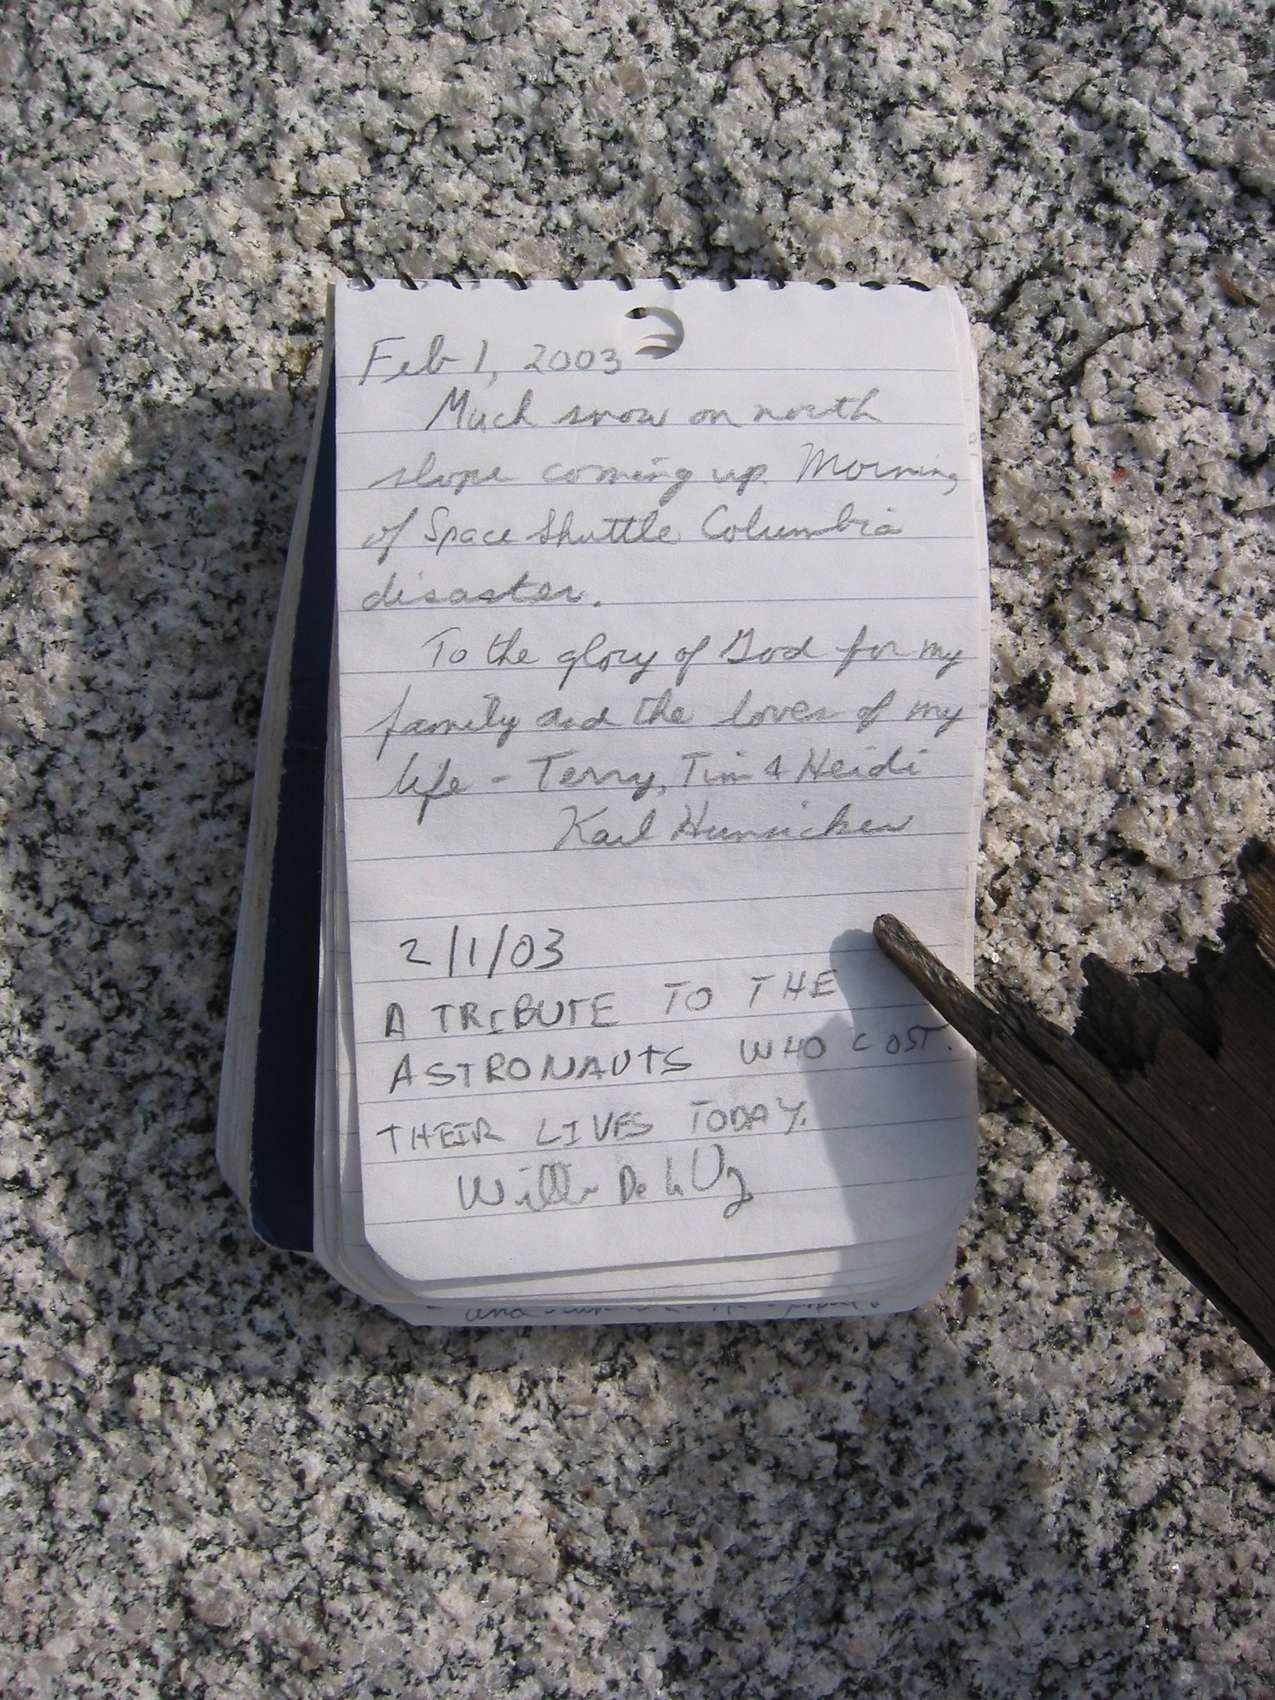 Feb 1, 2003
Much snow on north
slope coming up. Morning
of Space Shuttle Columbia
disaster.
To the glory of God for my
family and the loves of my
life - Terry, Tim & Heidi
Karl Hunsicker
2/1/03
A TRIBUTE TO THE
ASTRONAUTS WHO COST
THEIR LIVES TODAY.
De La